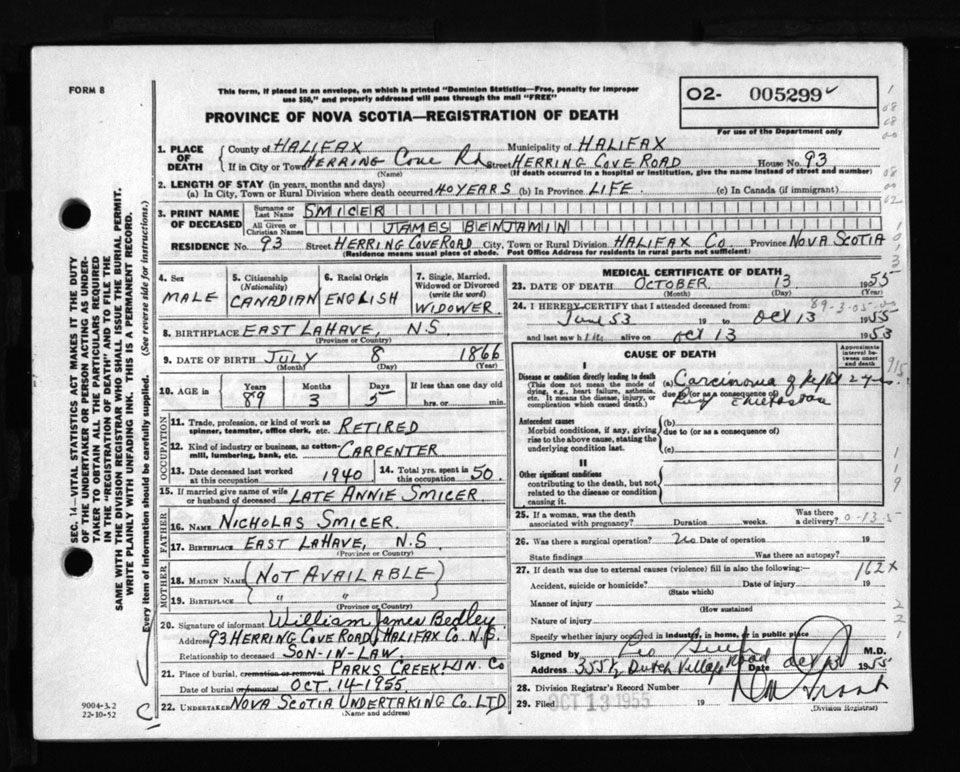 FORM 8
This form, if placed in an envelope, on which is printed "Dominion Statistics—Free, penalty for improper
use $50," and properly addressed will pass through the mail "FREE"
O2- 005299
For use of the Department only
PROVINCE OF NOVA SCOTIA—REGISTRATION OF DEATH
1. PLACE OF DEATH
County of HALIFAX Municipality of HALIFAX
If in City or Town HERRING Cove Rd Street HERRING COVE ROAD House No. 93
(Name) (If death occurred in a hospital or institution, give the name instead of street and number)
2. LENGTH OF STAY (in years, months and days)
(a) In City, Town or Rural Division where death occurred 40 YEARS (b) In Province LIFE. (c) In Canada (if immigrant)
3. PRINT NAME OF DECEASED
Surname or Last Name SMICER
All Given or Christian Names JAMES BENJAMIN
RESIDENCE No. 93 Street HERRING COVE ROAD City, Town or Rural Division HALIFAX Co. Province NOVA SCOTIA
(Residence means usual place of abode. Post Office Address for residents in rural parts not sufficient)
4. Sex MALE
5. Citizenship (Nationality) CANADIAN
6. Racial Origin ENGLISH
7. Single, Married, Widowed or Divorced (write the word) WIDOWER
8. BIRTHPLACE EAST LAHAVE, N.S.
(Province or Country)
9. DATE OF BIRTH JULY 8 1866
(Month) (Day) (Year)
10. AGE in Years 89 Months 3 Days 5 If less than one day old hrs. or min.
OCCUPATION
11. Trade, profession, or kind of work as spinner, teamster, office clerk, etc. RETIRED
12. Kind of industry or business, as cotton-mill, lumbering, bank, etc. CARPENTER
13. Date deceased last worked at this occupation 1940 14. Total yrs. spent in this occupation 50.
15. If married give name of wife or husband of deceased LATE ANNIE SMICER
FATHER
16. NAME NICHOLAS SMICER.
17. BIRTHPLACE EAST LAHAVE, N.S
(Province or Country)
MOTHER
18. MAIDEN NAME (NOT AVAILABLE)
19. BIRTHPLACE " "
(Province or Country)
20. Signature of informant William James Bedley
Address 93 HERRING COVE ROAD, HALIFAX CO. N.S.
Relationship to deceased SON-IN-LAW.
21. Place of burial, cremation or removal PARKS CREEK LUN. Co
Date of burial or removal OCT. 14-1955
22. UNDERTAKER NOVA SCOTIA UNDERTAKING CO. LTD
(Name and address)
MEDICAL CERTIFICATE OF DEATH
23. DATE OF DEATH OCTOBER 13 1955
(Month) (Day) (Year)
24. I HEREBY CERTIFY that I attended deceased from: 89-3-05
June 53 19 to Oct 13 1955
and last saw h im alive on Oct 13 1953
CAUSE OF DEATH
Approximate interval between onset and death
I
Disease or condition directly leading to death
(This does not mean the mode of dying, e.g., heart failure, asthenia, etc. It means the disease, injury, or complication which caused death.)
(a) Carcinoma of Right 2 yrs.
due to (or as a consequence of)
Antecedent causes
Morbid conditions, if any, giving rise to the above cause, stating the underlying condition last.
(b)
due to (or as a consequence of)
(c)
II
Other significant conditions
contributing to the death, but not related to the disease or condition causing it.
25. If a woman, was the death associated with pregnancy? Duration weeks. Was there a delivery? 0-13-5
26. Was there a surgical operation? No Date of operation 19
State findings Was there an autopsy?
27. If death was due to external causes (violence) fill in also the following:— 162x
Accident, suicide or homicide? Date of injury 19
(State which)
Manner of injury
(How sustained
Nature of injury
Specify whether injury occurred in industry, in home, or in public place
Signed by M.D.
Address 355 1/2 Dutch Village Road Date Oct 13 1955
28. Division Registrar's Record Number
29. Filed OCT 13 1955 19
(Division Registrar)
SEC. 14—VITAL STATISTICS ACT MAKES IT THE DUTY
OF THE UNDERTAKER OR PERSON ACTING AS UNDER-
TAKER TO OBTAIN ALL THE PARTICULARS REQUIRED
IN THE "REGISTRATION OF DEATH" AND TO FILE THE
SAME WITH THE DIVISION REGISTRAR WHO SHALL ISSUE THE BURIAL PERMIT.
WRITE PLAINLY WITH UNFADING INK. THIS IS A PERMANENT RECORD.
Every item of information should be carefully supplied. (See reverse side for instructions.)
9004-3.2
22-10-52